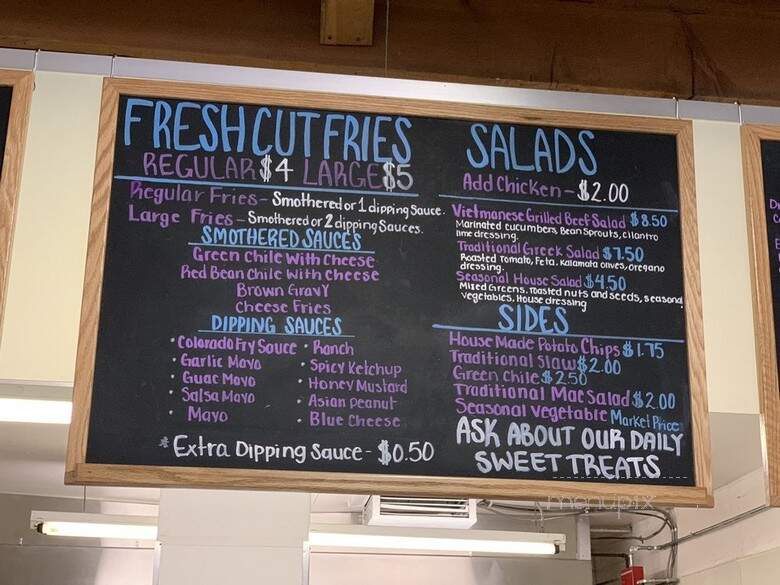 FRESH CUT FRIES
REGULAR $4 LARGE $5
Regular Fries - Smothered or 1 dipping Sauce.
Large Fries - Smothered or 2 dipping Sauces.
SMOTHERED SAUCES
Green Chile With Cheese
Red Bean Chile With Cheese
Brown Gravy
Cheese Fries
DIPPING SAUCES
• Colorado Fry Sauce • Ranch
• Garlic Mayo • Spicy Ketchup
• Guac Mayo • Honey Mustard
• Salsa Mayo • Asian Peanut
• Mayo • Blue Cheese
* Extra Dipping Sauce - $0.50
SALADS
Add Chicken - $2.00
Vietmanese Grilled Beef Salad $8.50
Marinated cucumbers, Bean Sprouts, cilantro
lime dressing.
Traditional Greek Salad $7.50
Roasted Tomato, Feta, Kalamata olives, oregano
dressing.
Seasonal House Salad $4.50
Mixed Greens, roasted nuts and seeds, seasonal
vegetables, House dressing
SIDES
House Made Potato Chips $1.75
Traditional Slaw $2.00
Green Chile $2.50
Traditional Mac Salad $2.00
Seasonal Vegetable Market Price
ASK ABOUT OUR DAILY
SWEET TREATS
menupix